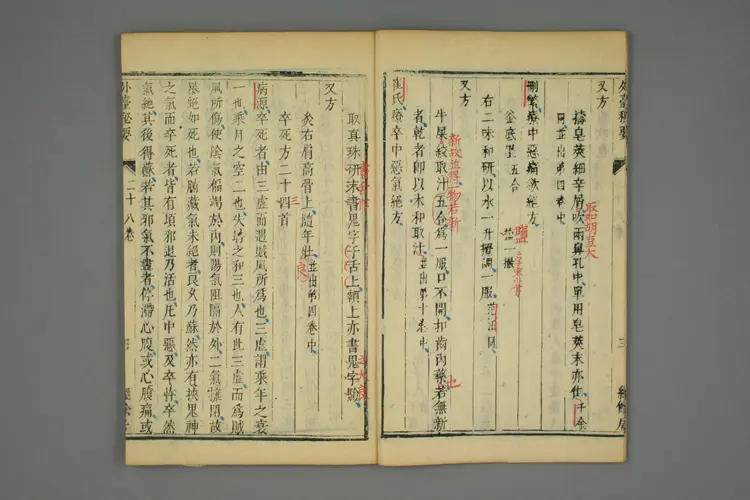 外臺秘要
三
又方
擣皂莢細辛屑吹兩鼻孔中單用皂莢末亦佳千金
同並出第四卷中
刪繁療中惡痛欲絕方
釜底墨五合
鹽一撮
右二味和研以水一升攪調一服
又方
牛屎絞取汁五合為一服口不開扣齒內藥若無新
者乾者即以水和取汁並出第十卷中
崔氏療卒中惡氣絕方
取真珠研末書鬼字于舌上額上亦書鬼字驗
又方
灸右肩高骨上隨年壯並出第四卷中
卒死方二十四首
病源卒死者由三虛而遇賊風所為也三虛謂乘年之衰
一也乘月之空二也失時之和三也人有此三虛而為賊
風所傷使陰氣偏竭於內則陽氣阻隔於外二氣壅閉故
暴絕如死也若腑臟氣未絕者良久乃蘇然亦有挾鬼神
之氣而卒死者皆有頃邪退乃活也凡中惡及卒忤卒然
氣絕其後得蘇若其邪氣不盡者停滯心腹或心腹痛或
外臺秘要
二十八卷